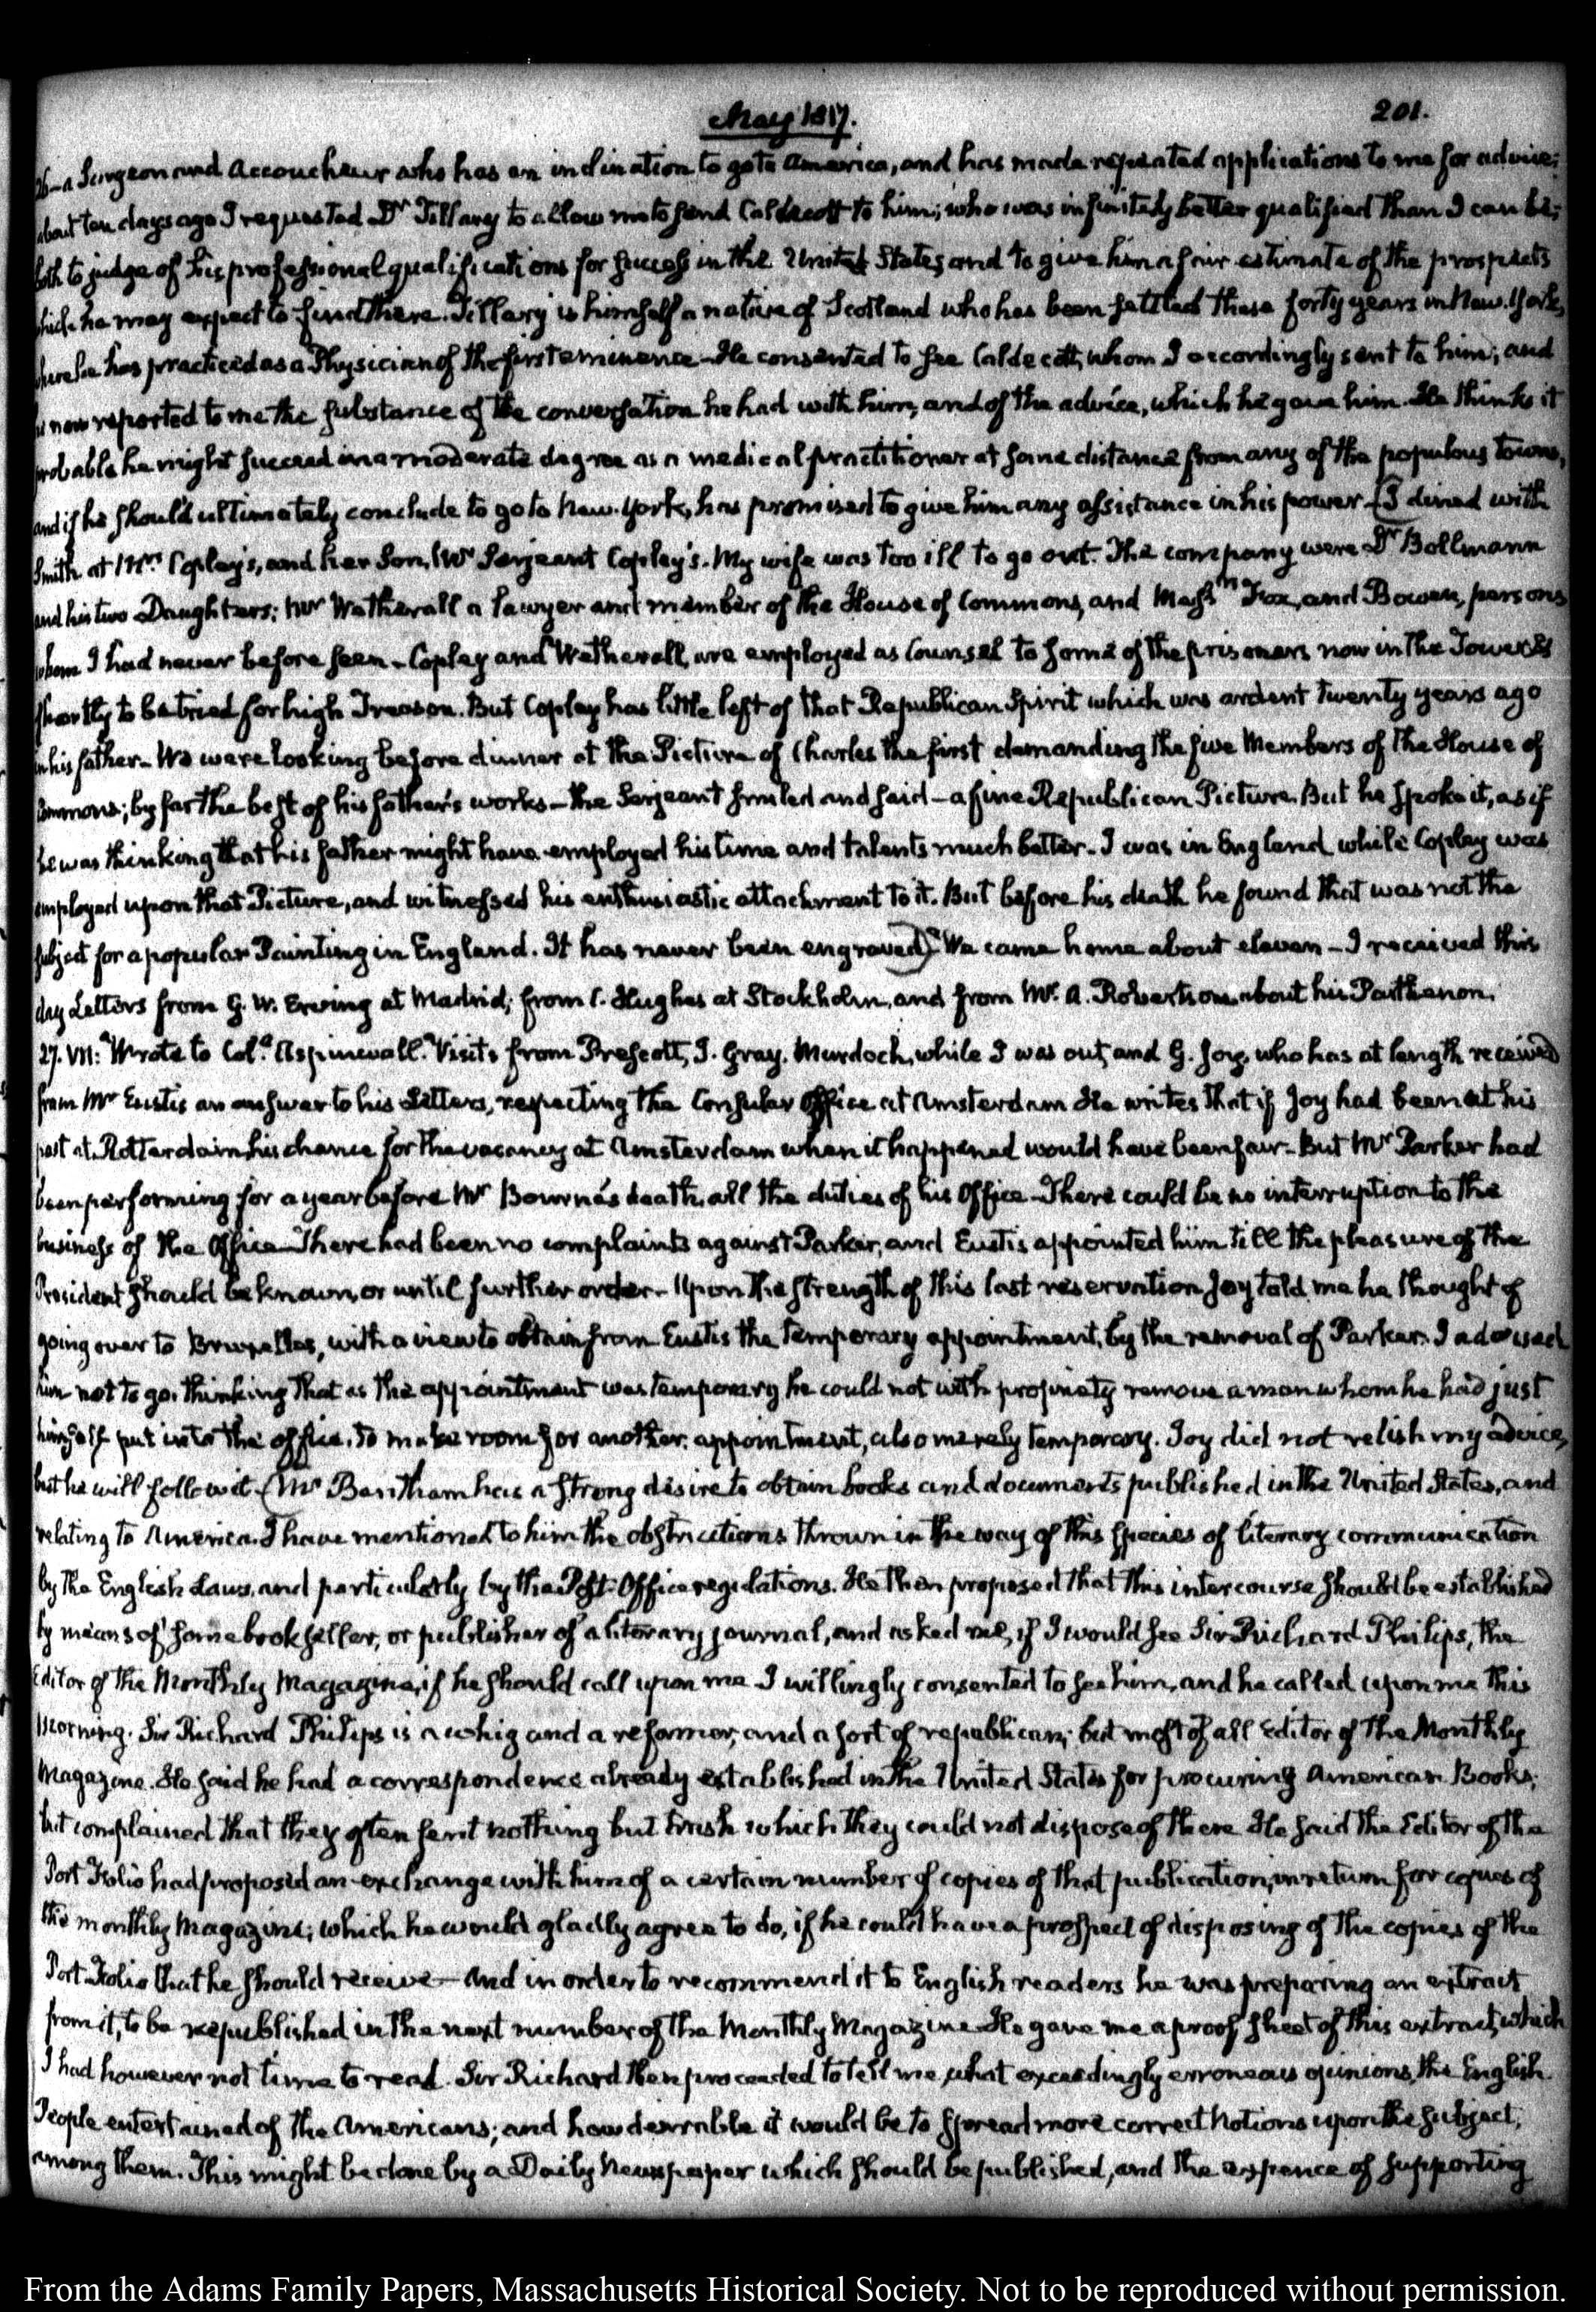 May 1817.
201.
26 — a Surgeon and Accoucheur who has an inclination to go to America, and has made repeated applications to me for advice;
about ten days ago I requested Dr Tillary to allow me to send Caldecott to him; who was infinitely better qualified than I can be;
both to judge of his professional qualifications for success in the United States and to give him a fair estimate of the prospects
which he may expect to find there. Tillary is himself a native of Scotland who has been settled these forty years in New-York,
where he has practiced as a Physician of the first eminence — He consented to see Caldecott, whom I accordingly sent to him; and
he now reported to me the substance of the conversation he had with him, and of the advice, which he gave him. He thinks it
probable he might succeed in a moderate degree as a medical practitioner at some distance from any of the populous towns,
and if he should ultimately conclude to go to New-York, has promised to give him any assistance in his power — (I dined with
Smith at Mrs Copley's, and her Son, Mr Serjeant Copley's. My wife was too ill to go out. The company were Dr Bollmann
and his two Daughters; Mr Wetherall a Lawyer and member of the House of Commons, and Messrs Fox, and Bowen, persons
whom I had never before seen — Copley and Wetherall, are employed as Counsel to some of the prisoners now in the Tower &
shortly to be tried for high Treason. But Copley has little left of that Republican Spirit which was ardent twenty years ago
in his father — We were looking before dinner at the Picture of Charles the first demanding the five Members of the House of
Commons; by far the best of his father's works — the Serjeant smiled and said — a fine Republican Picture. But he spoke it, as if
he was thinking that his father might have employed his time and talents much better — I was in England while Copley was
employed upon that Picture, and witnessed his enthusiastic attachment to it. But before his death he found that was not the
subject for a popular Painting in England. It has never been engraved) We came home about eleven — I received this
day Letters from G. W. Erving at Madrid; from C. Hughes at Stockholm, and from Mr A. Robertson about his Parthenon.
27. VII: Wrote to Coll. Aspinwall. Visits from Prescott, J. Gray. Murdoch, while I was out, and G. Joy, who has at length received
from Mr Eustis an answer to his Letters, respecting the Consular Office at Amsterdam He writes that if Joy had been at his
post at Rotterdam his chance for the vacancy at Amsterdam when it happened would have been fair — But Mr Parker had
been performing for a year before Mr Bourne's death, all the duties of his Office — There could be no interruption to the
business of the Office — There had been no complaints against Parker, and Eustis appointed him till the pleasure of the
President should be known, or until further order — Upon the strength of this last reservation Joy told me he thought of
going over to Bruxelles, with a view to obtain from Eustis the temporary appointment, by the removal of Parker. I advised
him not to go. thinking that as the appointment was temporary he could not with propriety remove a man whom he had just
himself put into the office, to make room for another appointment, also merely temporary. Joy did not relish my advice,
but he will follow it — (Mr Bentham has a strong desire to obtain books and documents published in the United States, and
relating to America. I have mentioned to him the obstructions thrown in the way of this species of literary communication
by the English Laws, and particularly by the Post-Office regulations. He then proposed that this intercourse should be established
by means of some bookseller, or publisher of a literary journal, and asked me, if I would see Sir Richard Philips, the
Editor of the Monthly Magazine, if he should call upon me I willingly consented to see him, and he called upon me this
Morning. Sir Richard Philips is a whig and a reformer, and a sort of republican; but most of all Editor of the Monthly
Magazine. He said he had a correspondence already established in the United States for procuring American Books;
but complained that they often sent nothing but trash which they could not dispose of there He said the Editor of the
Port Folio had proposed an exchange with him of a certain number of copies of that publication, in return for copies of
the monthly Magazine; which he would gladly agree to do, if he could have a prospect of disposing of the copies of the
Port-Folio that he should receive — and in order to recommend it to English readers he was preparing an extract
from it, to be republished in the next number of the Monthly Magazine He gave me a proof sheet of this extract, which
I had however not time to read. Sir Richard then proceeded to tell me, what exceedingly erroneous opinions, the English
People entertained of the Americans; and how desirable it would be to spread more correct Notions upon the subject,
among them. This might be done by a Daily Newspaper which should be published, and the expence of supporting
From the Adams Family Papers, Massachusetts Historical Society. Not to be reproduced without permission.